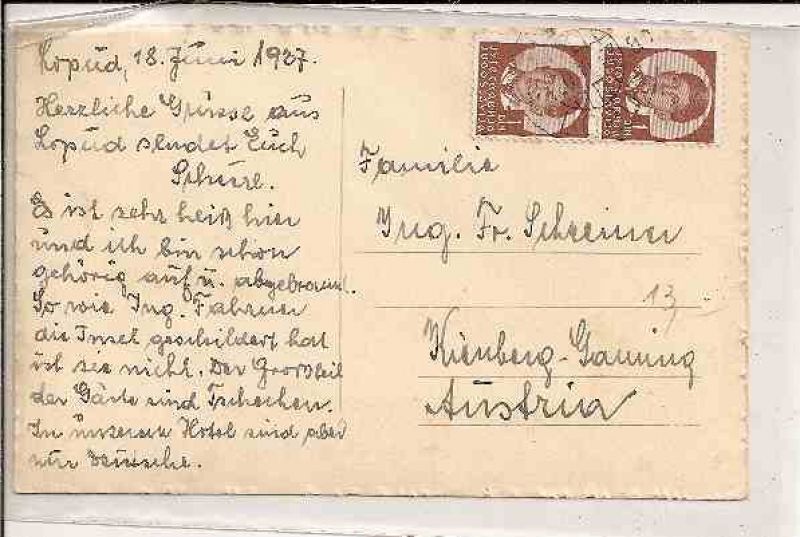 Lopud, 18. Juni 1937.
Herzliche Grüsse aus
Lopud sendet Euch
Es ist sehr heiß hier
und ich bin schon
gehörig auf u. abgebrannt.
So wie Ing. Fahrner
die Insel geschildert hat
ist sie nicht. Der Großteil
der Gäste sind Tschechen.
In unserem Hotel sind aber
nur Deutsche.
Familie
Ing. Fr. Schreiner
13
Kienberg-Gaming
Austria